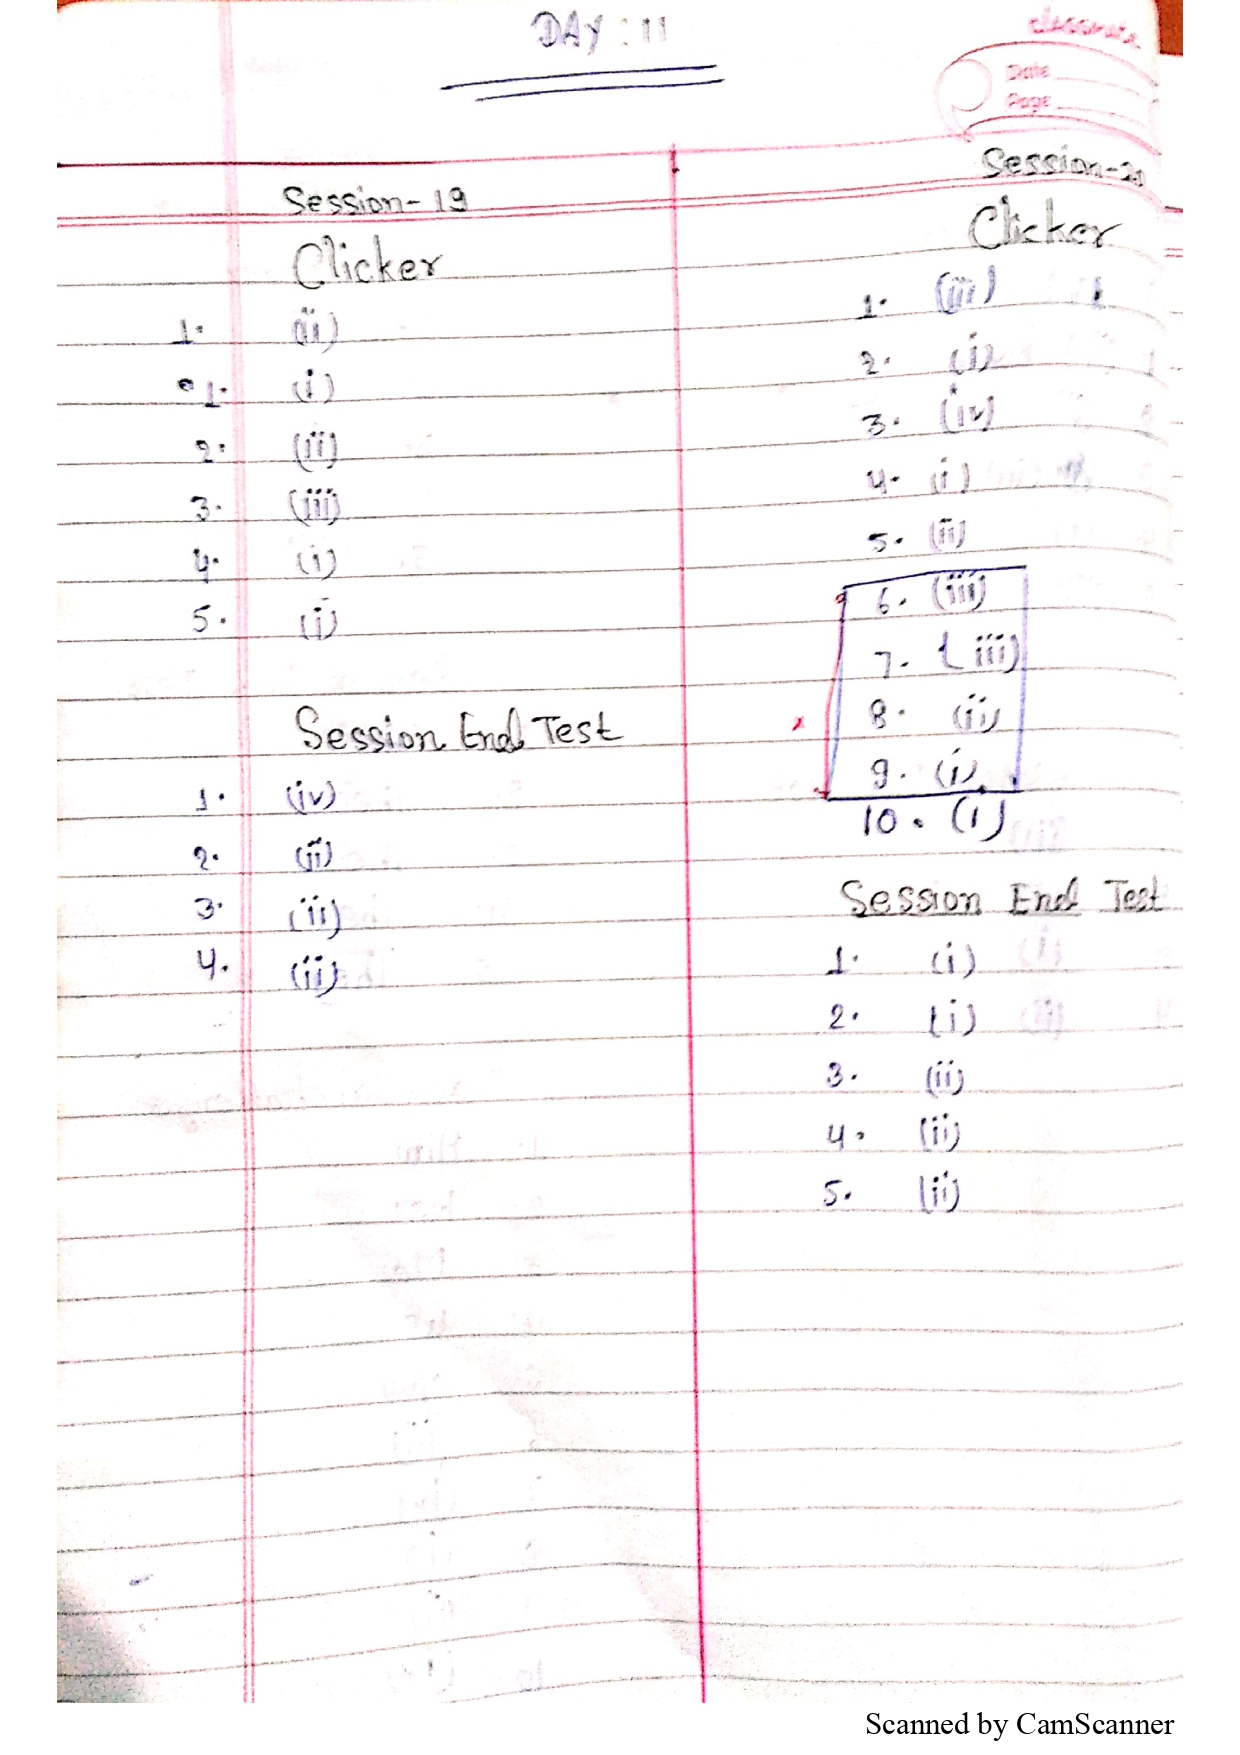 DAY : 11
classmate
Date
Page
Session- 19
Clicker
1. (iii)
1. (i)
2. (ii)
3. (iii)
4. (i)
5. (i)
Session End Test
1. (iv)
2. (ii)
3. (ii)
4. (ii)
Session-20
Clicker
1. (iii)
2. (i)
3. (iv)
4. (i)
5. (ii)
6. (iii)
7. (iii)
8. (ii)
9. (i)
10. (i)
Session End Test
1. (i)
2. (i)
3. (ii)
4. (ii)
5. (ii)
Scanned by CamScanner